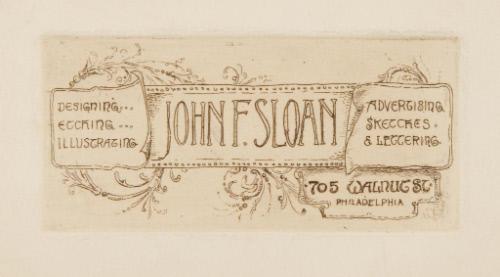 DESIGNING...
ETCHING ...
ILLUSTRATING
JOHN F. SLOAN
ADVERTISING
SKETCHES.
& LETTERING
705 WALNUT ST
PHILADELPHIA